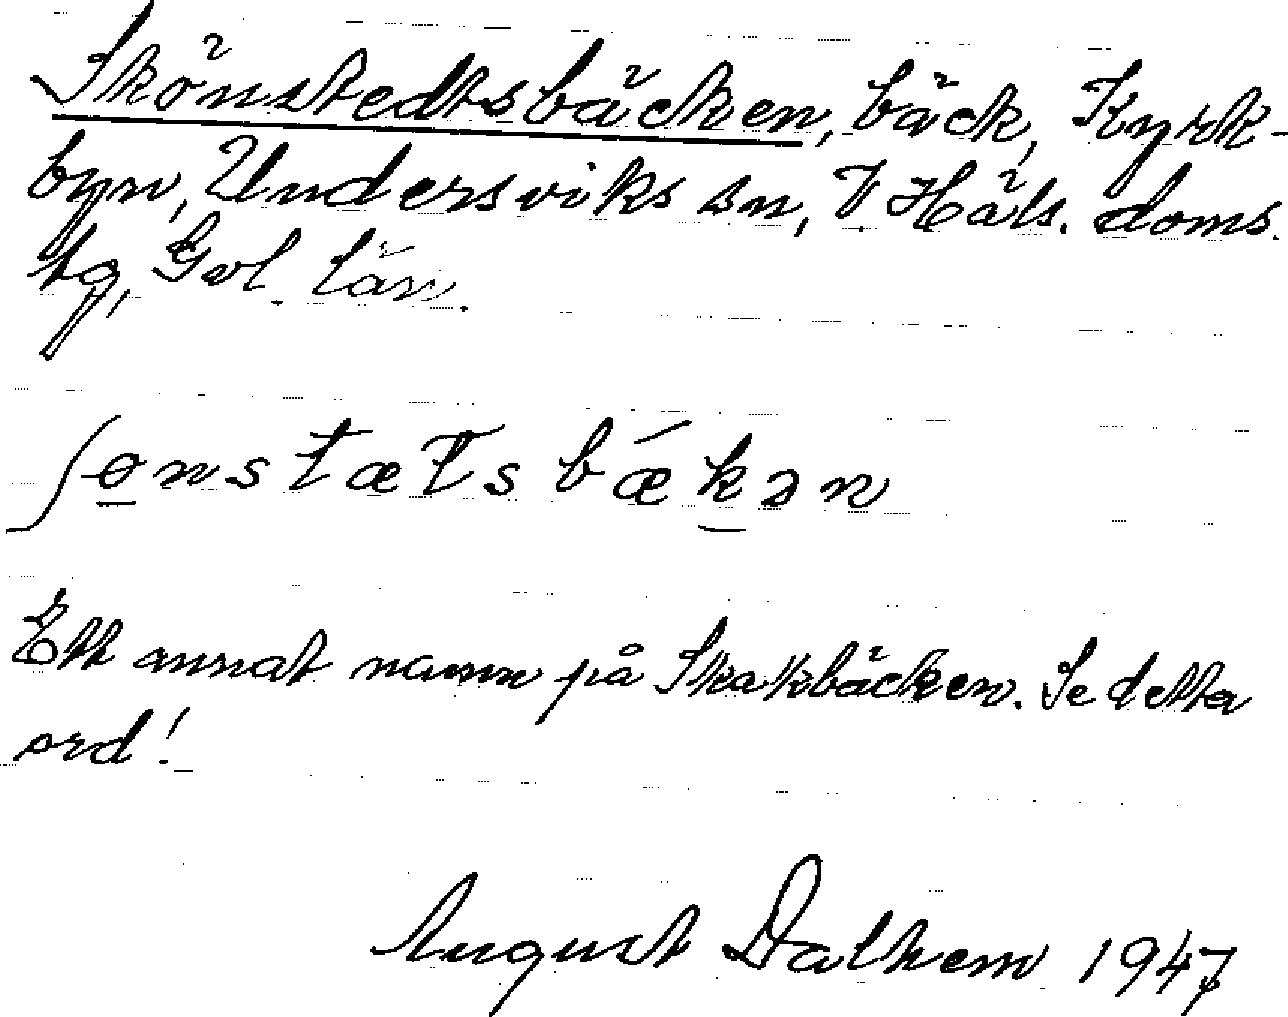 Skönstedtsbäcken, bäck, Kyrk-
byn, Undersviks sn, V. Häls. doms.
tg, Gvl. län.
ʃønstætsbǽkən
Ett annat namn på Skakbäcken. Se detta
ord!
August Dalhem 1947